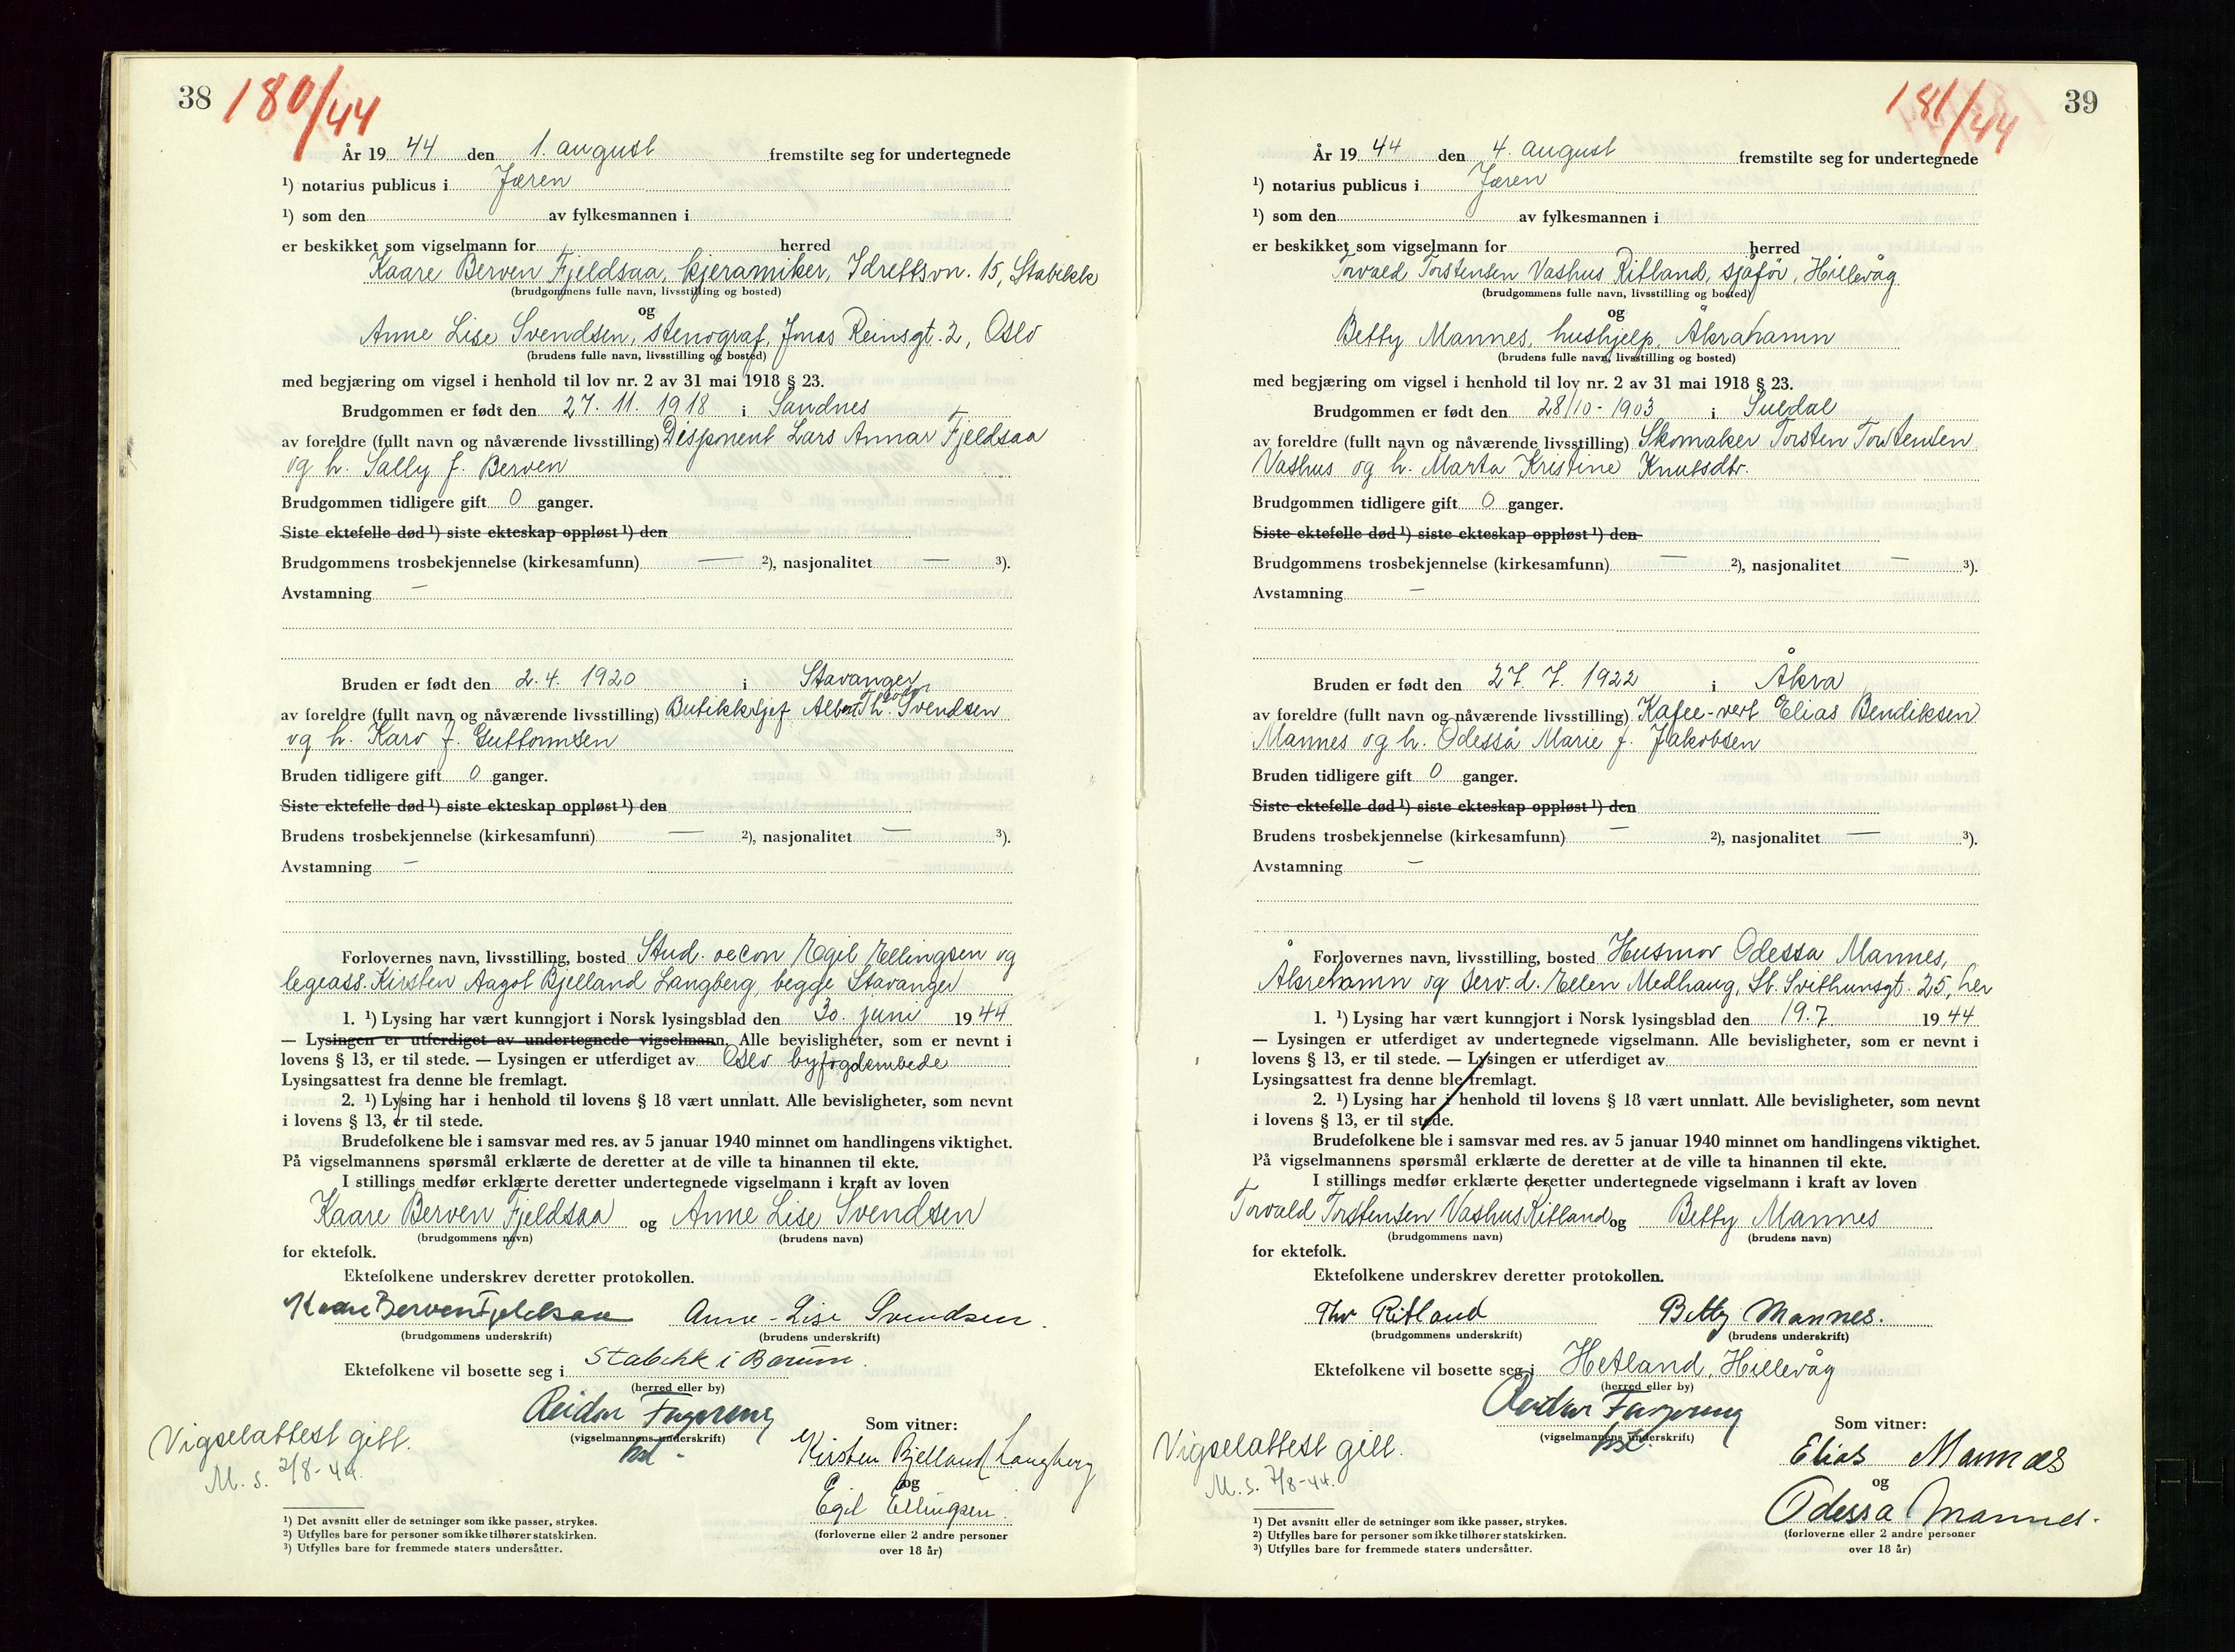 38 180/44
År 19 44 den 1. august fremstilte seg for undertegnede
¹) notarius publicus i Jæren
¹) som den av fylkesmannen i
er beskikket som vigselmann for herred
Kaare Berven Fjeldsaa, kjeramiker, Idrettsvn. 15, Stabekk
(brudgommens fulle navn, livsstilling og bosted)
og
Anne Lise Svendsen, stenograf, Jonas Reinsgt. 2, Oslo
(brudens fulle navn, livsstilling og bosted)
med begjæring om vigsel i henhold til lov nr. 2 av 31 mai 1918 § 23.
Brudgommen er født den 27. 11. 1918 i Sandnes
av foreldre (fullt navn og nåværende livsstilling) Disponent Lars Annar Fjeldsaa
og h. Sally f. Berven
Brudgommen tidligere gift 0 ganger.
Siste ektefelle død ¹) siste ekteskap oppløst ¹) den
Brudgommens trosbekjennelse (kirkesamfunn) — ²), nasjonalitet — ³).
Avstamning —
Bruden er født den 2. 4. 1920 i Stavanger
av foreldre (fullt navn og nåværende livsstilling) Butikksjef Albert Th. Svendsen
og h. Karo f. Guttormsen
Bruden tidligere gift 0 ganger.
Siste ektefelle død ¹) siste ekteskap oppløst ¹) den
Brudens trosbekjennelse (kirkesamfunn) — ²), nasjonalitet — ³).
Avstamning —
Forlovernes navn, livsstilling, bosted Stud. oecon Egil Ellingsen og
legeass. Kirsten Aagot Bjelland Langberg, begge Stavanger
1. ¹) Lysing har vært kunngjort i Norsk lysingsblad den 30. juni 19 44
— Lysingen er utferdiget av undertegnede vigselmann. Alle bevisligheter, som er nevnt i
lovens § 13, er til stede. — Lysingen er utferdiget av Oslo byfogdembede
Lysingsattest fra denne ble fremlagt.
2. ¹) Lysing har i henhold til lovens § 18 vært unnlatt. Alle bevisligheter, som nevnt
i lovens § 13, er til stede.
Brudefolkene ble i samsvar med res. av 5 januar 1940 minnet om handlingens viktighet.
På vigselmannens spørsmål erklærte de deretter at de ville ta hinannen til ekte.
I stillings medfør erklærte deretter undertegnede vigselmann i kraft av loven
Kaare Berven Fjeldsaa og Anne Lise Svendsen
(brudgommens navn) (brudens navn)
for ektefolk.
Ektefolkene underskrev deretter protokollen.
Kaare Berven Fjeldsaa Anne-Lise Svendsen.
(brudgommens underskrift) (brudens underskrift)
Ektefolkene vil bosette seg i Stabekk i Bærum.
(herred eller by)
Reidar Fagereng Som vitner:
(vigselmannens underskrift)
Vigselattest gitt. Kirsten Bjelland Langberg
M. S. 2/8-44. og
Egil Ellingsen.
¹) Det avsnitt eller de setninger som ikke passer, strykes.
²) Utfylles bare for personer som ikke tilhører statskirken. (forloverne eller 2 andre personer
³) Utfylles bare for fremmede staters undersåtter. over 18 år)
181/44 39
År 19 44 den 4. august fremstilte seg for undertegnede
¹) notarius publicus i Jæren
¹) som den av fylkesmannen i
er beskikket som vigselmann for herred
Torvald Torstensen Vashus Ritland, sjåfør, Hillevåg
(brudgommens fulle navn, livsstilling og bosted)
og
Betty Mannes, hushjelp, Åkrahamn
(brudens fulle navn, livsstilling og bosted)
med begjæring om vigsel i henhold til lov nr. 2 av 31 mai 1918 § 23.
Brudgommen er født den 28/10-1903 i Suldal
av foreldre (fullt navn og nåværende livsstilling) Skomaker Torsten Torstensen
Vashus og h. Marta Kristine Knutsdtr.
Brudgommen tidligere gift 0 ganger.
Siste ektefelle død ¹) siste ekteskap oppløst ¹) den
Brudgommens trosbekjennelse (kirkesamfunn) — ²), nasjonalitet — ³).
Avstamning —
Bruden er født den 27. 7. 1922 i Åkra
av foreldre (fullt navn og nåværende livsstilling) Kafee-vert Elias Bendiksen
Mannes og h. Odesså Marie f. Jakobsen
Bruden tidligere gift 0 ganger.
Siste ektefelle død ¹) siste ekteskap oppløst ¹) den
Brudens trosbekjennelse (kirkesamfunn) — ²), nasjonalitet — ³).
Avstamning —
Forlovernes navn, livsstilling, bosted Husmor Odessa Mannes,
Åkrehamn og serv.d. Ellen Medhaug, St. Svithunsgt. 25, her
1. ¹) Lysing har vært kunngjort i Norsk lysingsblad den 19.7. 19 44
— Lysingen er utferdiget av undertegnede vigselmann. Alle bevisligheter, som er nevnt i
lovens § 13, er til stede. — Lysingen er utferdiget av
Lysingsattest fra denne ble fremlagt.
2. ¹) Lysing har i henhold til lovens § 18 vært unnlatt. Alle bevisligheter, som nevnt
i lovens § 13, er til stede.
Brudefolkene ble i samsvar med res. av 5 januar 1940 minnet om handlingens viktighet.
På vigselmannens spørsmål erklærte de deretter at de ville ta hinannen til ekte.
I stillings medfør erklærte deretter undertegnede vigselmann i kraft av loven
Torvald Torstensen Vashus Ritland og Betty Mannes
(brudgommens navn) (brudens navn)
for ektefolk.
Ektefolkene underskrev deretter protokollen.
Thv Ritland Betty Mannes.
(brudgommens underskrift) (brudens underskrift)
Ektefolkene vil bosette seg i Hetland, Hillevåg
(herred eller by)
Reidar Fagereng Som vitner:
(vigselmannens underskrift)
Vigselattest gitt. Elias Mannes
M. S. 7/8-44. og
Odessa Mannes.
¹) Det avsnitt eller de setninger som ikke passer, strykes.
²) Utfylles bare for personer som ikke tilhører statskirken. (forloverne eller 2 andre personer
³) Utfylles bare for fremmede staters undersåtter. over 18 år)